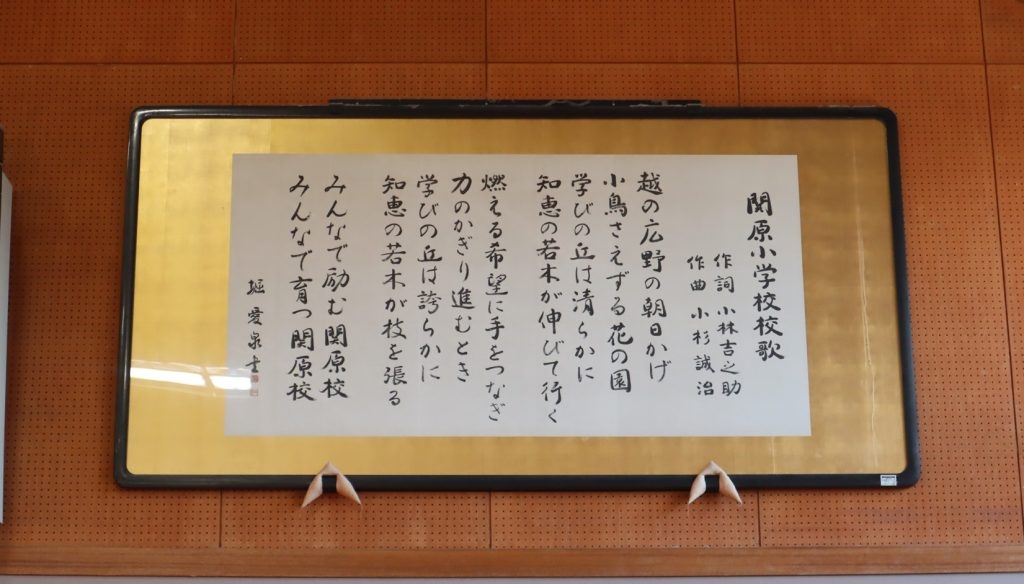 関原小学校校歌
作詞 小林吉之助
作曲 小杉誠治
越の広野の朝日かげ
小鳥さえずる花の園
学びの丘は清らかに
知恵の若木が伸びて行く
燃える希望に手をつなぎ
力のかぎり進むとき
学びの丘は誇らかに
知恵の若木が枝を張る
みんなで励む関原校
みんなで育つ関原校
堀愛泉書